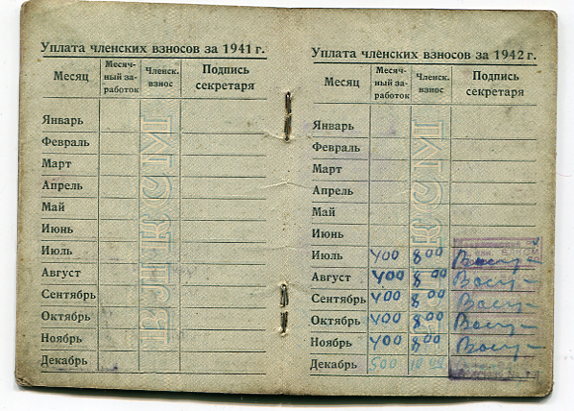 Уплата членских взносов за 1941 г.
Месяц Месяч-ный за-работок Членск. взнос Подпись секретаря
Январь
Февраль
Март
Апрель
Май
Июнь
Июль
Август
Сентябрь
Октябрь
Ноябрь
Декабрь
ВЛКСМ
Уплата членских взносов за 1942 г.
Месяц Месяч-ный за-работок Членск. взнос Подпись секретаря
Январь
Февраль
Март
Апрель
Май
Июнь
Июль 400 8 00
Август 400 8 00
Сентябрь 400 8 00
Октябрь 400 8 00
Ноябрь 400 8 00
Декабрь 500
ВЛКСМ